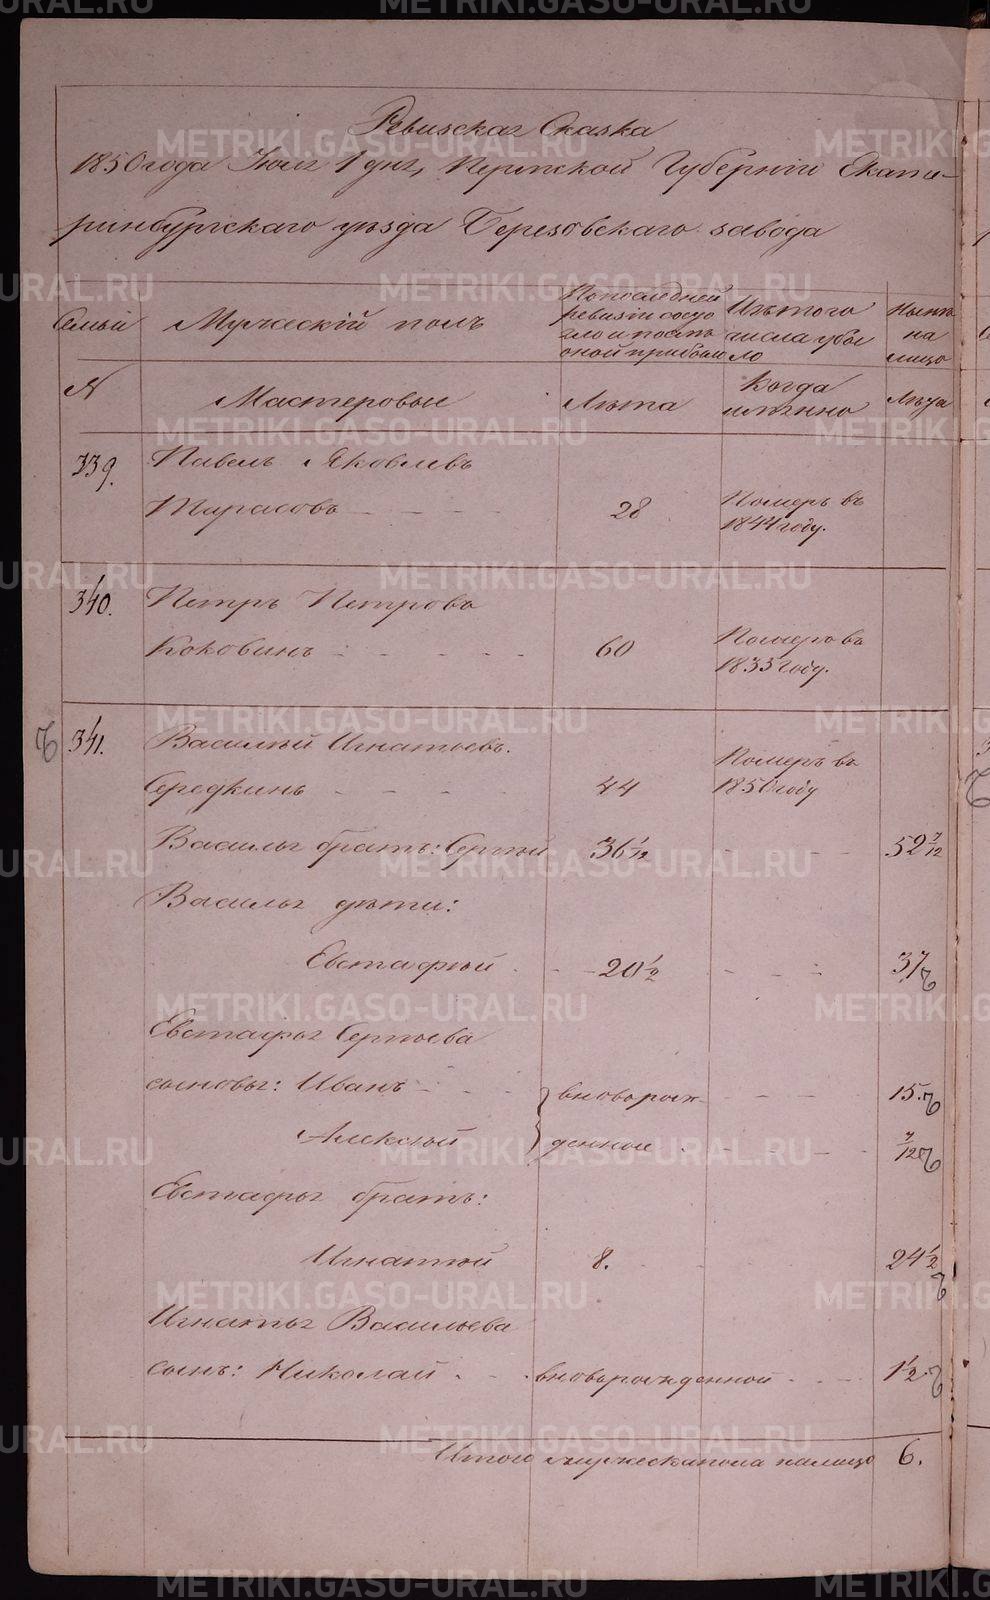 Ревизская Сказка
1850 года Июля 1 дня, Пермской Губернiи Екате-
ринбургскаго уѣзда Березовскаго завода
Семьи
Мужескiй полъ
По последней
ревизiи состо
яло и послѣ
оной прибыло
Изъ того
числа убы
ло
Нынѣ
на
лицо
№
Мастеровые
Лѣта
Когда
имянно
Лѣта
339.
Павелъ Яковлевъ
Тарасовъ
28
Померъ въ
1844 году.
340.
Петръ Петровъ
Коковинъ
60
Померъ въ
1835 году.
341.
Василiй Игнатьевъ.
Середкинъ
44
Померъ въ
1850 году
Василья братъ: Сергѣй
36 1/12
52 7/12
Василья дѣти:
Евстафiй
20 1/2
37
Евстафья Сергѣева
сыновья: Иванъ
вноворож-
15.
Алексѣй
денные
7/12
Евстафья братъ:
Игнатiй
8.
24 1/2
Игнатья Васильева
сынъ: Николай
вноворожденной
1 1/2
Итого мужеска пола на лицо
6.
METRIKI.GASO-URAL.RU